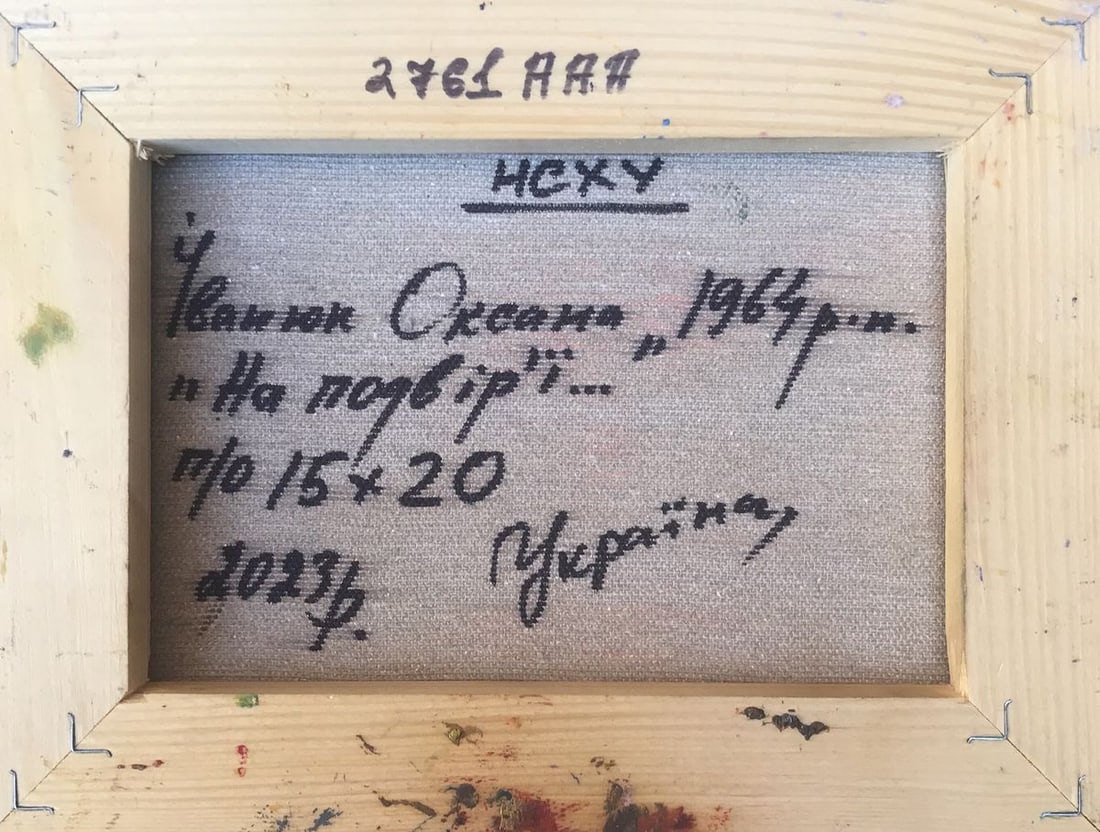 2761 ААА
НСХУ
Іванюк Оксана, 1964 р.н.
"На подвір'ї..."
п/о 15x20
Україна,
2023р.